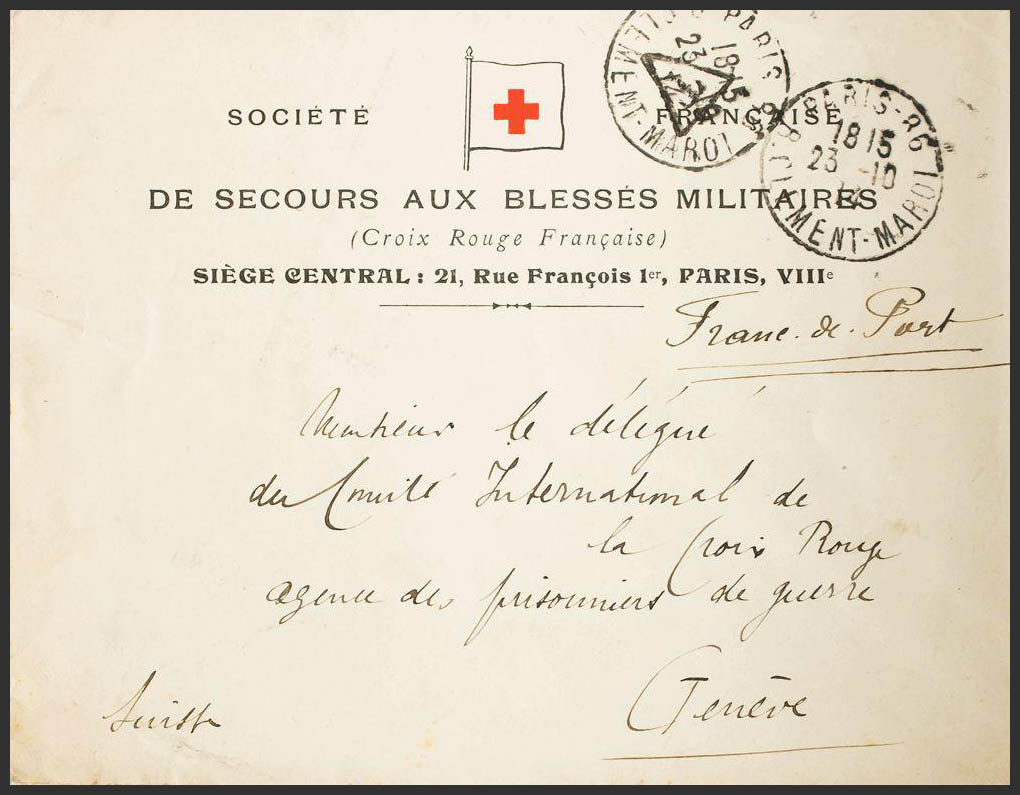 SOCIÉTÉ FRANÇAISE
DE SECOURS AUX BLESSÉS MILITAIRES
(Croix Rouge Française)
SIÈGE CENTRAL : 21, Rue François 1er, PARIS, VIIIe
PARIS 86
18 15
23
CLEMENT-MAROT
PARIS-86
18 15
23 -10
R. CLEMENT-MAROT
Franc. de. Port
Monsieur le délégué
du Comité International de
la Croix Rouge
agence des prisonniers de guerre
Genève
Suisse